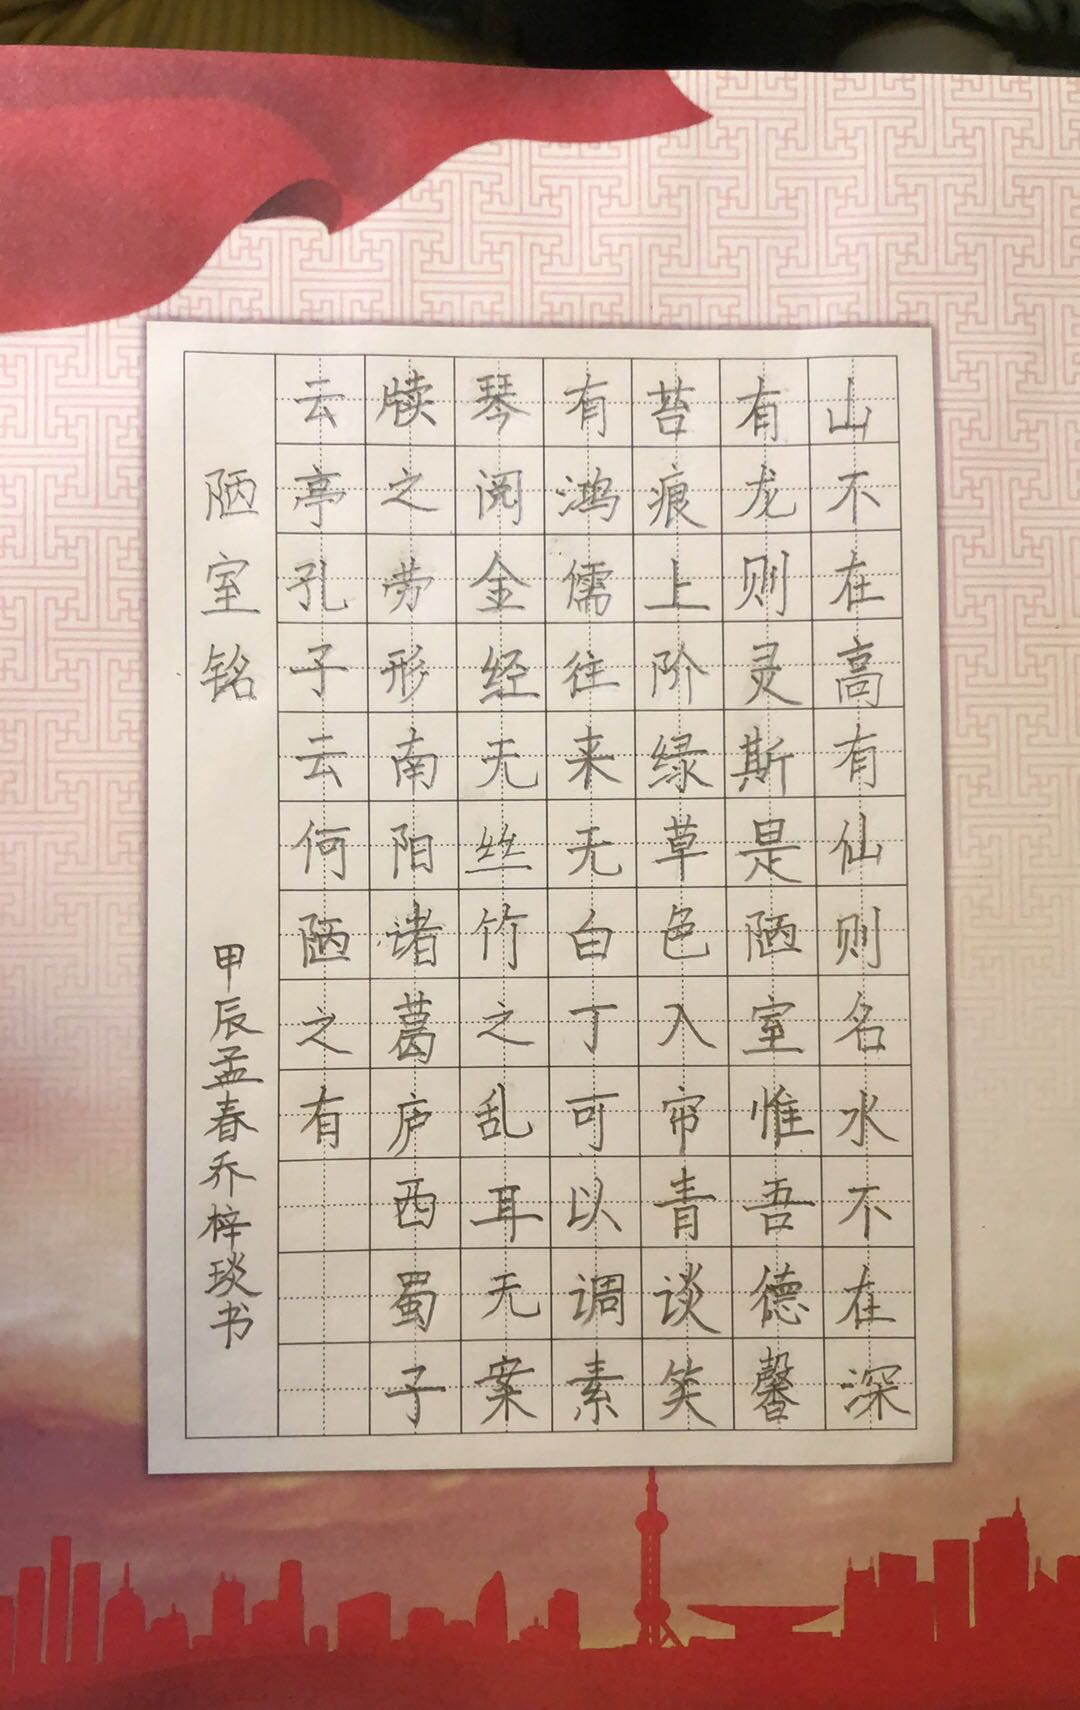 山不在高有仙则名水不在深
有龙则灵斯是陋室惟吾德馨
苔痕上阶绿草色入帘青谈笑
有鸿儒往来无白丁可以调素
琴阅金经无丝竹之乱耳无案
牍之劳形南阳诸葛庐西蜀子
云亭孔子云何陋之有
陋室铭 甲辰孟春乔梓琰书